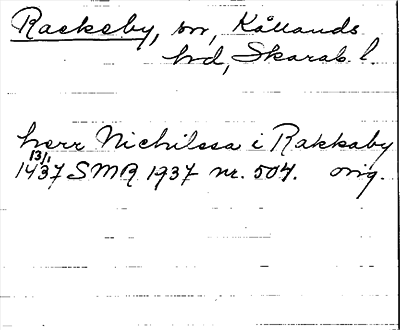 Rackeby, sn, Kållands
hd, Skarab. l.
herr Nichilssa i Rakkaby
13/1
1437 SMR 1937 nr. 504. orig.